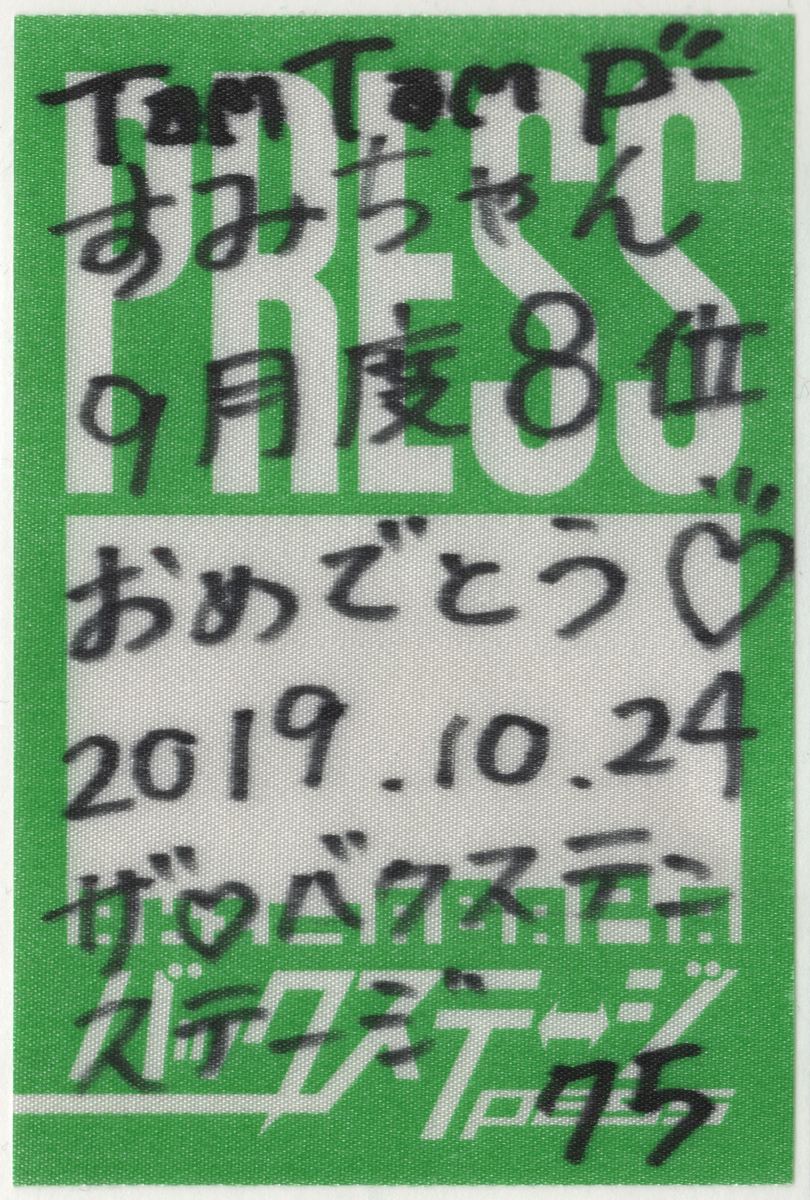 PRESS
TamTam ガー
すみちゃん
9月度8位
おめでとう♡
2019.10.24
ザ♡ベクステニ
ステージ
バックステージ
press
75